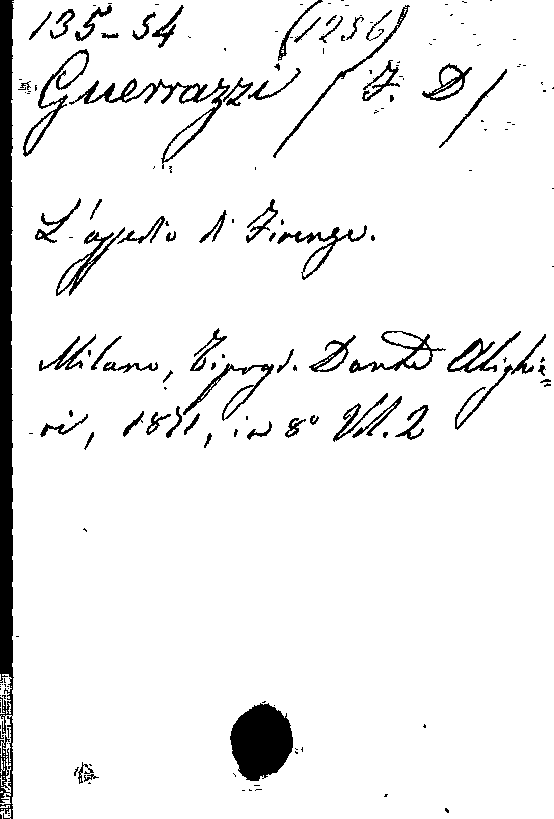 135-54 (1256)
Guerrazzi / F. D /
L'assedio di Firenze.
Milano, Tipogr. Dante Alighie=
ri, 1871, in 8° Vol. 2